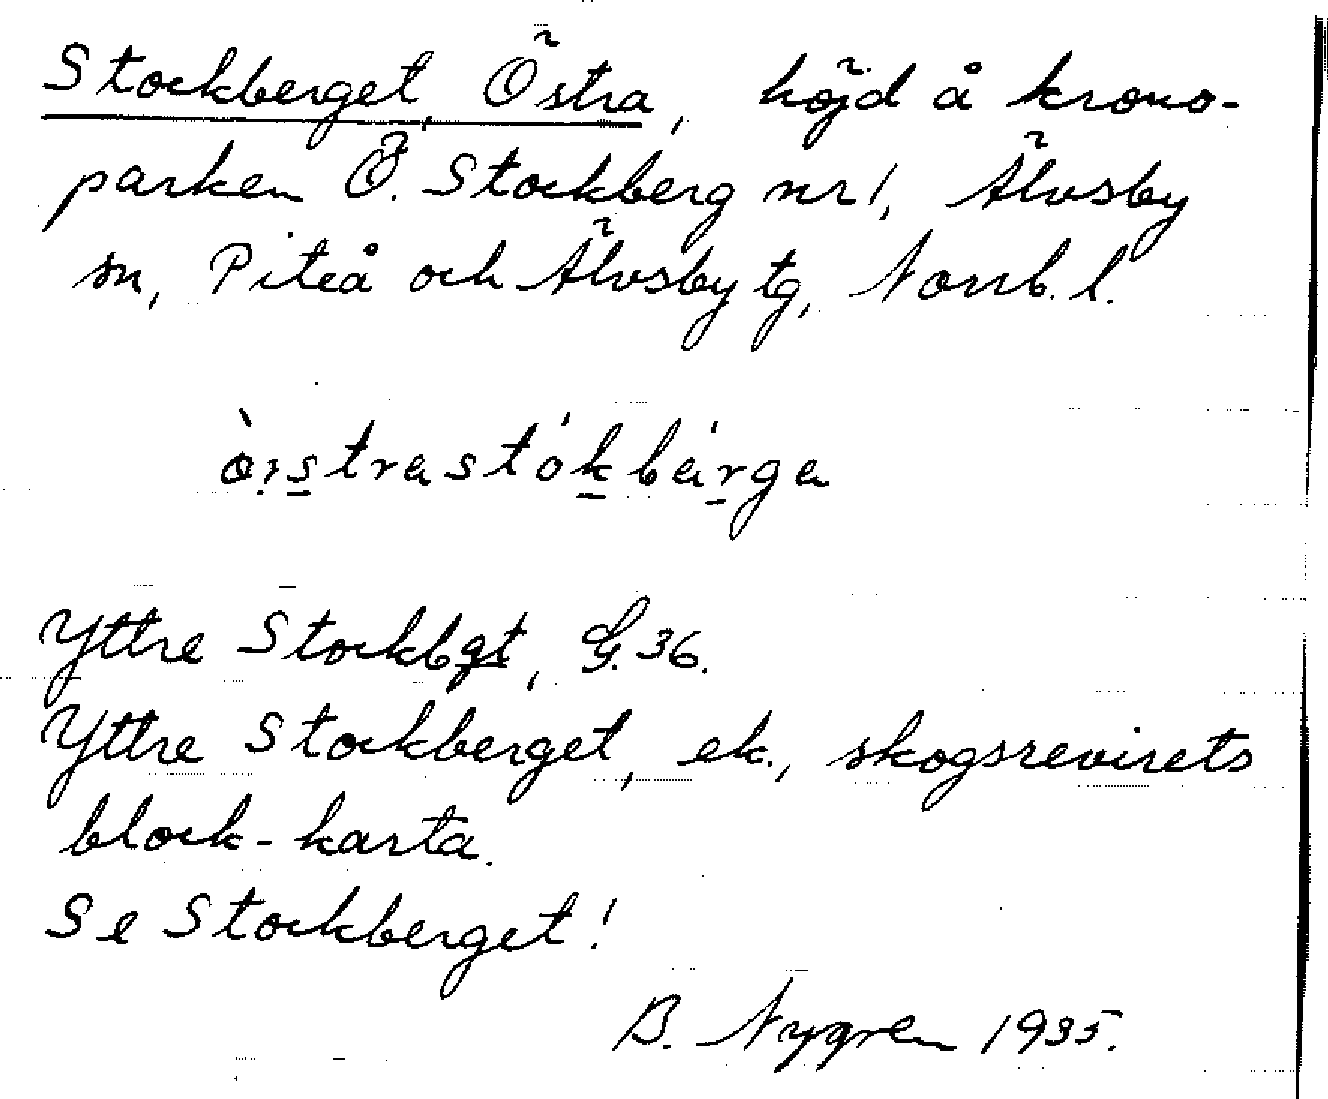 Stockberget, Östra, höjd å krono-
parken Ö. Stockberg nr 1, Älvsby
sn, Piteå och Älvsby tg, Norrb. l.
ò:strastókbárga
Yttre Stockbgt, G. 36.
Yttre Stockberget, ek., skogsrevirets
block-karta.
Se Stockberget!
B. Nygren 1935.